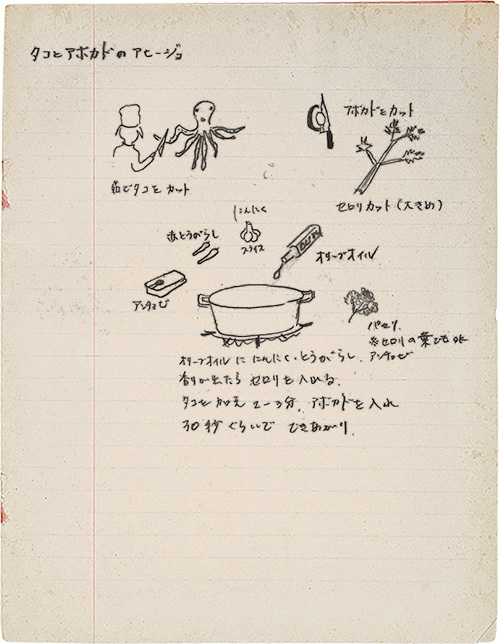 タコとアボカドのアヒージョ
アボカドをカット
包丁でタコをカット
セロリカット(大きめ)
にんにく
スライス
赤とうがらし
オリーブオイル
アンチョビ
パセリ
※セロリの葉でもOK
オリーブオイルに にんにく・とうがらし、アンチョビ
香りが出たら セロリを入れる。
タコを加え 2〜3分、アボカドを入れ
30秒ぐらいで できあがり。